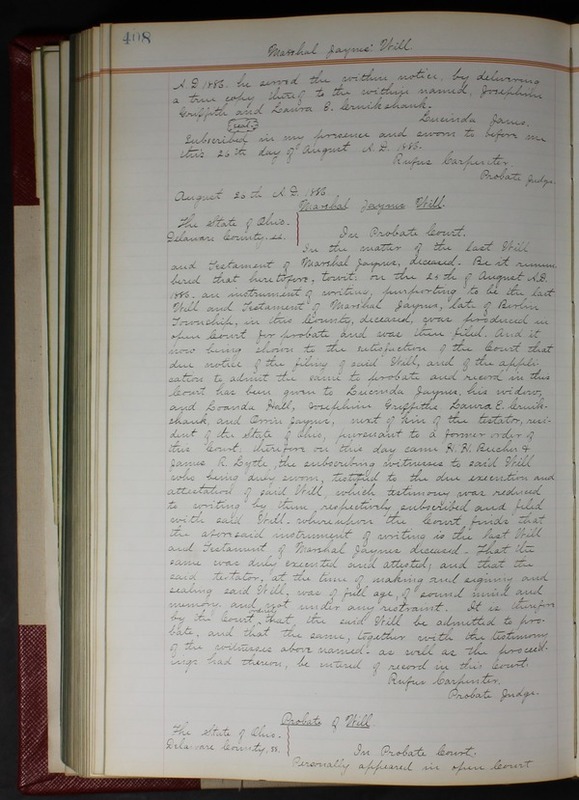 408
Marshal Jaynes' Will.
A.D. 1886. he served the within notice, by delivering
a true copy thereof to the within named, Josephine
Griffith and Laura E. Cruikshank.
Lucinda Jams.
Seal
Subscribed in my presence and sworn to before me
this 26th day of August A.D. 1886.
Rufus Carpenter,
Probate Judge.
August 26th A.D. 1886
Marshal Jaynes Will.
The State of Ohio.
Delaware County. ss.
In Probate Court.
In the matter of the last Will
and Testament of Marshal Jaynes, deceased. Be it remem
bered that heretofore, towit: on the 25th of August A.D.
1886. an instrument of writing, purporting to be the last
Will and Testament of Marshal Jaynes, late of Berlin
Township, in this County, deceased, was produced in
open Court for probate and was then filed. And it
now being shown to the satisfaction of the Court that
due notice of the filing of said Will, and of the appli-
cation to admit the same to probate and record in this
Court has been given to Lucinda Jaynes, his widow,
and Loanda Hall, Josephine Griffiths Laura E. Cruik-
shank, and Orrin Jaynes, next of kin of the testator, resi-
dent of the State of Ohio, pursuant to a former order of
this Court. therefore on this day came H. H. Beecher &
James R. Lytle, the subscribing witnesses to said Will
who being duly sworn, testified to the due execution and
attestation of said Will, which testimony was reduced
to writing by them respectively subscribed and filed
with said Will. whereupon the Court finds that
the aforesaid instrument of writing is the last Will
and Testament of Marshal Jaynes deceased. That the
same was duly executed and attested; and that the
said testator, at the time of making and signing and
sealing said Will, was of full age, of sound mind and
memory and not under any restraint. It is therefore
by the Court, that, the said Will be admitted to pro-
bate, and that the same, together with the testimony
of the witnesses above named as well as the proceed-
ings had thereon, be entered of record in this Court.
Rufus Carpenter,
Probate Judge.
Probate of Will
The State of Ohio.
Delaware County, ss.
In Probate Court.
Personally appeared in open Court